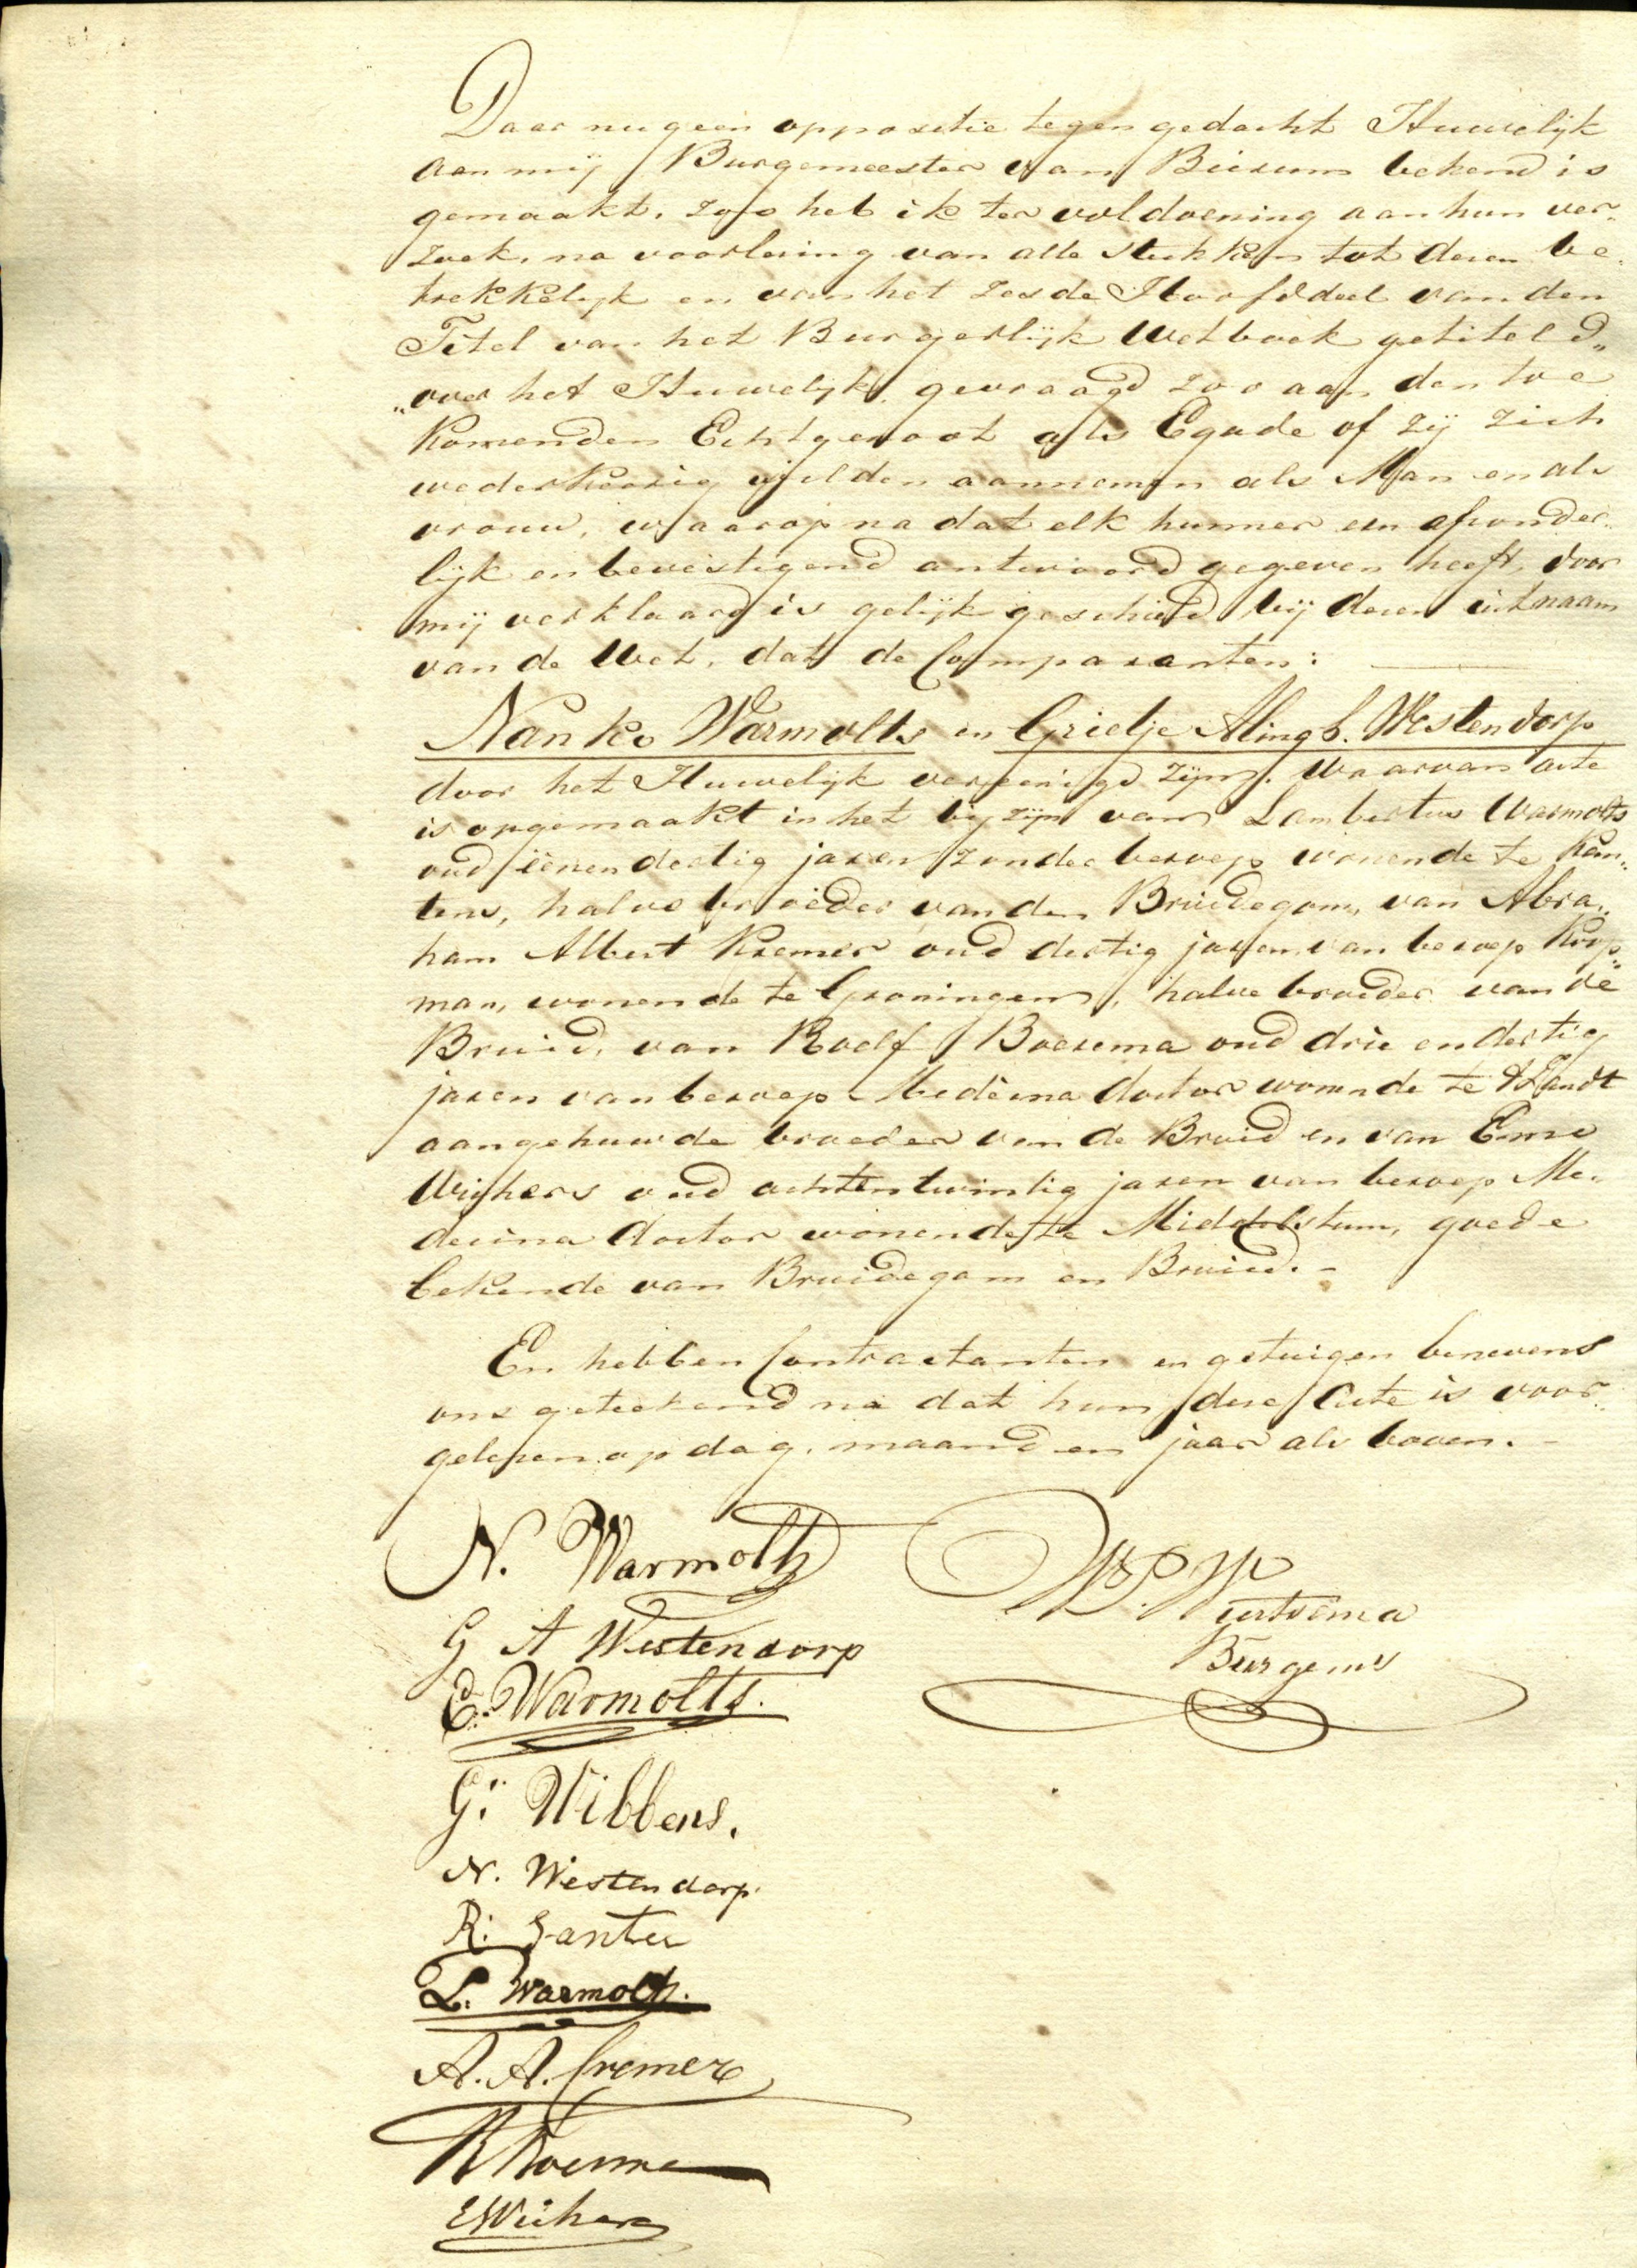 Daar nu geen oppositie tegen gedacht Huwelijk
aan mij Burgemeester van Bierum bekend is
gemaakt, zoo heb ik ter voldoening aan hun ver„
zoek, na voorlezing van alle stukken tot dezen be„
trekkelijk en van het zesde Hoofddeel van den
Titel van het Burgerlijk Wetboek getiteld„
„over het Huwelijk, gevraagd zoo aan den toe
komenden Echtgenoot als Egade of zij zich
wederkeerig wilden aannemen als Man en als
vrouw, waarop na dat elk hunner een afzonder„
lijk en bevestigend antwoord gegeven heeft, door
mij verklaard is gelijk geschied bij dezen uit naam
van de Wet, dat de Comparanten:
Nanko Warmolts en Grietje Alingh. Westendorp
door het Huwelijk vereenigd zijn. Waarvan acte
is opgemaakt in het bijzijn van Lambertus Warmolts
oud eenendertig jaren zonder beroep wonende te Kan„
tens, halve broeder van den Bruidegom, van Abra„
ham Albert Kremer oud dertig jaren, van beroep Koop„
man, wonende te Groningen, halve broeder van de
Bruid, van Roelf Boerema oud drie en dertig
jaren van beroep Medicina doctor wonende te 't Zandt
aangehuwde broeder van de Bruid en van
Wichers oud achtentwintig jaren van beroep Me„
decina doctor wonende te Middelstum, goede
bekende van Bruidegom en Bruid. -
En hebben Contractanten en getuigen benevens
ons geteekend na dat hun deze Acte is voor„
gelezen op dag, maand en jaar als boven. -
N. Warmolts
G A Westendorp
E. Warmolts.
G: Wibbens.
N. Westendorp.
R: Santee
L. Warmolts.
A. A. Cremer
R Boerma
E Wichers
Burgemr